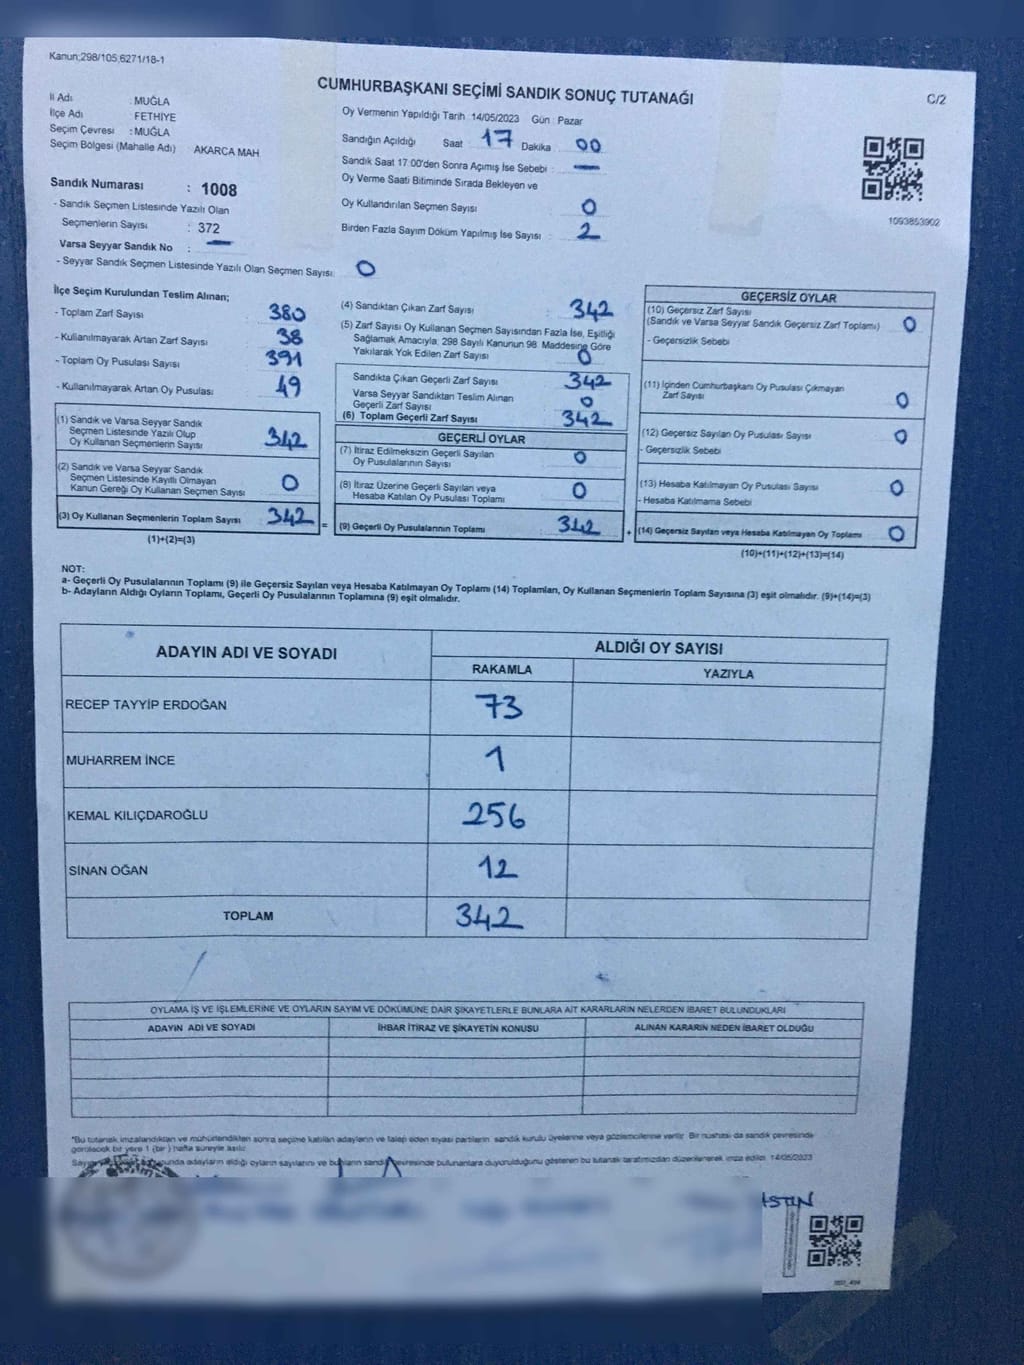 Kanun;298/105,6271/18-1
CUMHURBAŞKANI SEÇİMİ SANDIK SONUÇ TUTANAĞI
C/2
İl Adı : MUĞLA
İlçe Adı : FETHİYE
Seçim Çevresi : MUĞLA
Seçim Bölgesi (Mahalle Adı) : AKARCA MAH
Sandık Numarası : 1008
- Sandık Seçmen Listesinde Yazılı Olan
Seçmenlerin Sayısı : 372
Varsa Seyyar Sandık No : —
- Seyyar Sandık Seçmen Listesinde Yazılı Olan Seçmen Sayısı: 0
Oy Vermenin Yapıldığı Tarih :14/05/2023 Gün : Pazar
Sandığın Açıldığı Saat 17 Dakika 00
Sandık Saat 17:00'den Sonra Açımış İse Sebebi : —
Oy Verme Saati Bitiminde Sırada Bekleyen ve
Oy Kullandırılan Seçmen Sayısı 0
Birden Fazla Sayım Döküm Yapılmış İse Sayısı : 2
1093853902
İlçe Seçim Kurulundan Teslim Alınan;
- Toplam Zarf Sayısı : 380
- Kullanılmayarak Artan Zarf Sayısı : 38
- Toplam Oy Pusulası Sayısı : 391
- Kullanılmayarak Artan Oy Pusulası : 49
(1) Sandık ve Varsa Seyyar Sandık
Seçmen Listesinde Yazılı Olup
Oy Kullanan Seçmenlerin Sayısı : 342
(2) Sandık ve Varsa Seyyar Sandık
Seçmen Listesinde Kayıtlı Olmayan
Kanun Gereği Oy Kullanan Seçmen Sayısı : 0
(3) Oy Kullanan Seçmenlerin Toplam Sayısı : 342 =
(1)+(2)=(3)
(4) Sandıktan Çıkan Zarf Sayısı : 342
(5) Zarf Sayısı Oy Kullanan Seçmen Sayısından Fazla İse, Eşitliği
Sağlamak Amacıyla, 298 Sayılı Kanunun 98. Maddesine Göre
Yakılarak Yok Edilen Zarf Sayısı : 0
Sandıkta Çıkan Geçerli Zarf Sayısı : 342
Varsa Seyyar Sandıktan Teslim Alınan
Geçerli Zarf Sayısı : 0
(6) Toplam Geçerli Zarf Sayısı : 342
GEÇERLİ OYLAR
(7) İtiraz Edilmeksizin Geçerli Sayılan
Oy Pusulalarının Sayısı : 0
(8) İtiraz Üzerine Geçerli Sayılan veya
Hesaba Katılan Oy Pusulası Toplamı : 0
(9) Geçerli Oy Pusulalarının Toplamı : 342 +
GEÇERSİZ OYLAR
(10) Geçersiz Zarf Sayısı
(Sandık ve Varsa Seyyar Sandık Geçersiz Zarf Toplamı) : 0
- Geçersizlik Sebebi
(11) İçinden Cumhurbaşkanı Oy Pusulası Çıkmayan
Zarf Sayısı : 0
(12) Geçersiz Sayılan Oy Pusulası Sayısı : 0
- Geçersizlik Sebebi
(13) Hesaba Katılmayan Oy Pusulası Sayısı : 0
- Hesaba Katılmama Sebebi
(14) Geçersiz Sayılan veya Hesaba Katılmayan Oy Toplamı : 0
(10)+(11)+(12)+(13)=(14)
NOT:
a- Geçerli Oy Pusulalarının Toplamı (9) ile Geçersiz Sayılan veya Hesaba Katılmayan Oy Toplamı (14) Toplamları, Oy Kullanan Seçmenlerin Toplam Sayısına (3) eşit olmalıdır. (9)+(14)=(3)
b- Adayların Aldığı Oyların Toplamı, Geçerli Oy Pusulalarının Toplamına (9) eşit olmalıdır.
ADAYIN ADI VE SOYADI
ALDIĞI OY SAYISI
RAKAMLA YAZIYLA
RECEP TAYYİP ERDOĞAN 73
MUHARREM İNCE 1
KEMAL KILIÇDAROĞLU 256
SİNAN OĞAN 12
TOPLAM 342
OYLAMA İŞ VE İŞLEMLERİNE VE OYLARIN SAYIM VE DÖKÜMÜNE DAİR ŞİKAYETLERLE BUNLARA AİT KARARLARIN NELERDEN İBARET BULUNDUKLARI
ADAYIN ADI VE SOYADI İHBAR İTİRAZ VE ŞİKAYETİN KONUSU ALINAN KARARIN NEDEN İBARET OLDUĞU
*Bu tutanak imzalandıktan ve mühürlendikten sonra seçime katılan adayların ve talep eden siyasi partilerin sandık kurulu üyelerine veya gözlemcilerine verilir. Bir nüshası da sandık çevresinde
görülecek bir yere 1 (bir) hafta süreyle asılır.
adayların aldığı oyların sayılarını ve bunların sandık çevresinde bulunanlara duyurulduğunu gösteren bu tutanak tarafımızdan düzenlenerek imza edildi. 14/05/2023